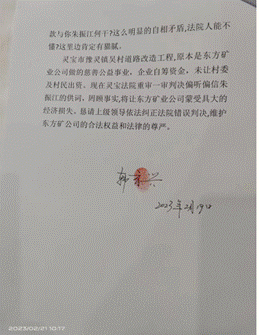 款与你朱振江何干?这么明显的自相矛盾,法院人能不
懂?这里边肯定有猫腻。
灵宝市豫灵镇吴村道路改造工程,原本是东方矿
业公司做的慈善公益事业,企业自筹资金,未让村委
及村民出资。现在灵宝法院重审一审判决偏听偏信朱
振江的供词,罔顾事实,将让东方矿业公司蒙受具大的
经济损失。恳请上级领导依法纠正法院错误判决,维护
东方矿公司的合法权益和法律的尊严。
2023年2月19日
2023/02/21 10:17